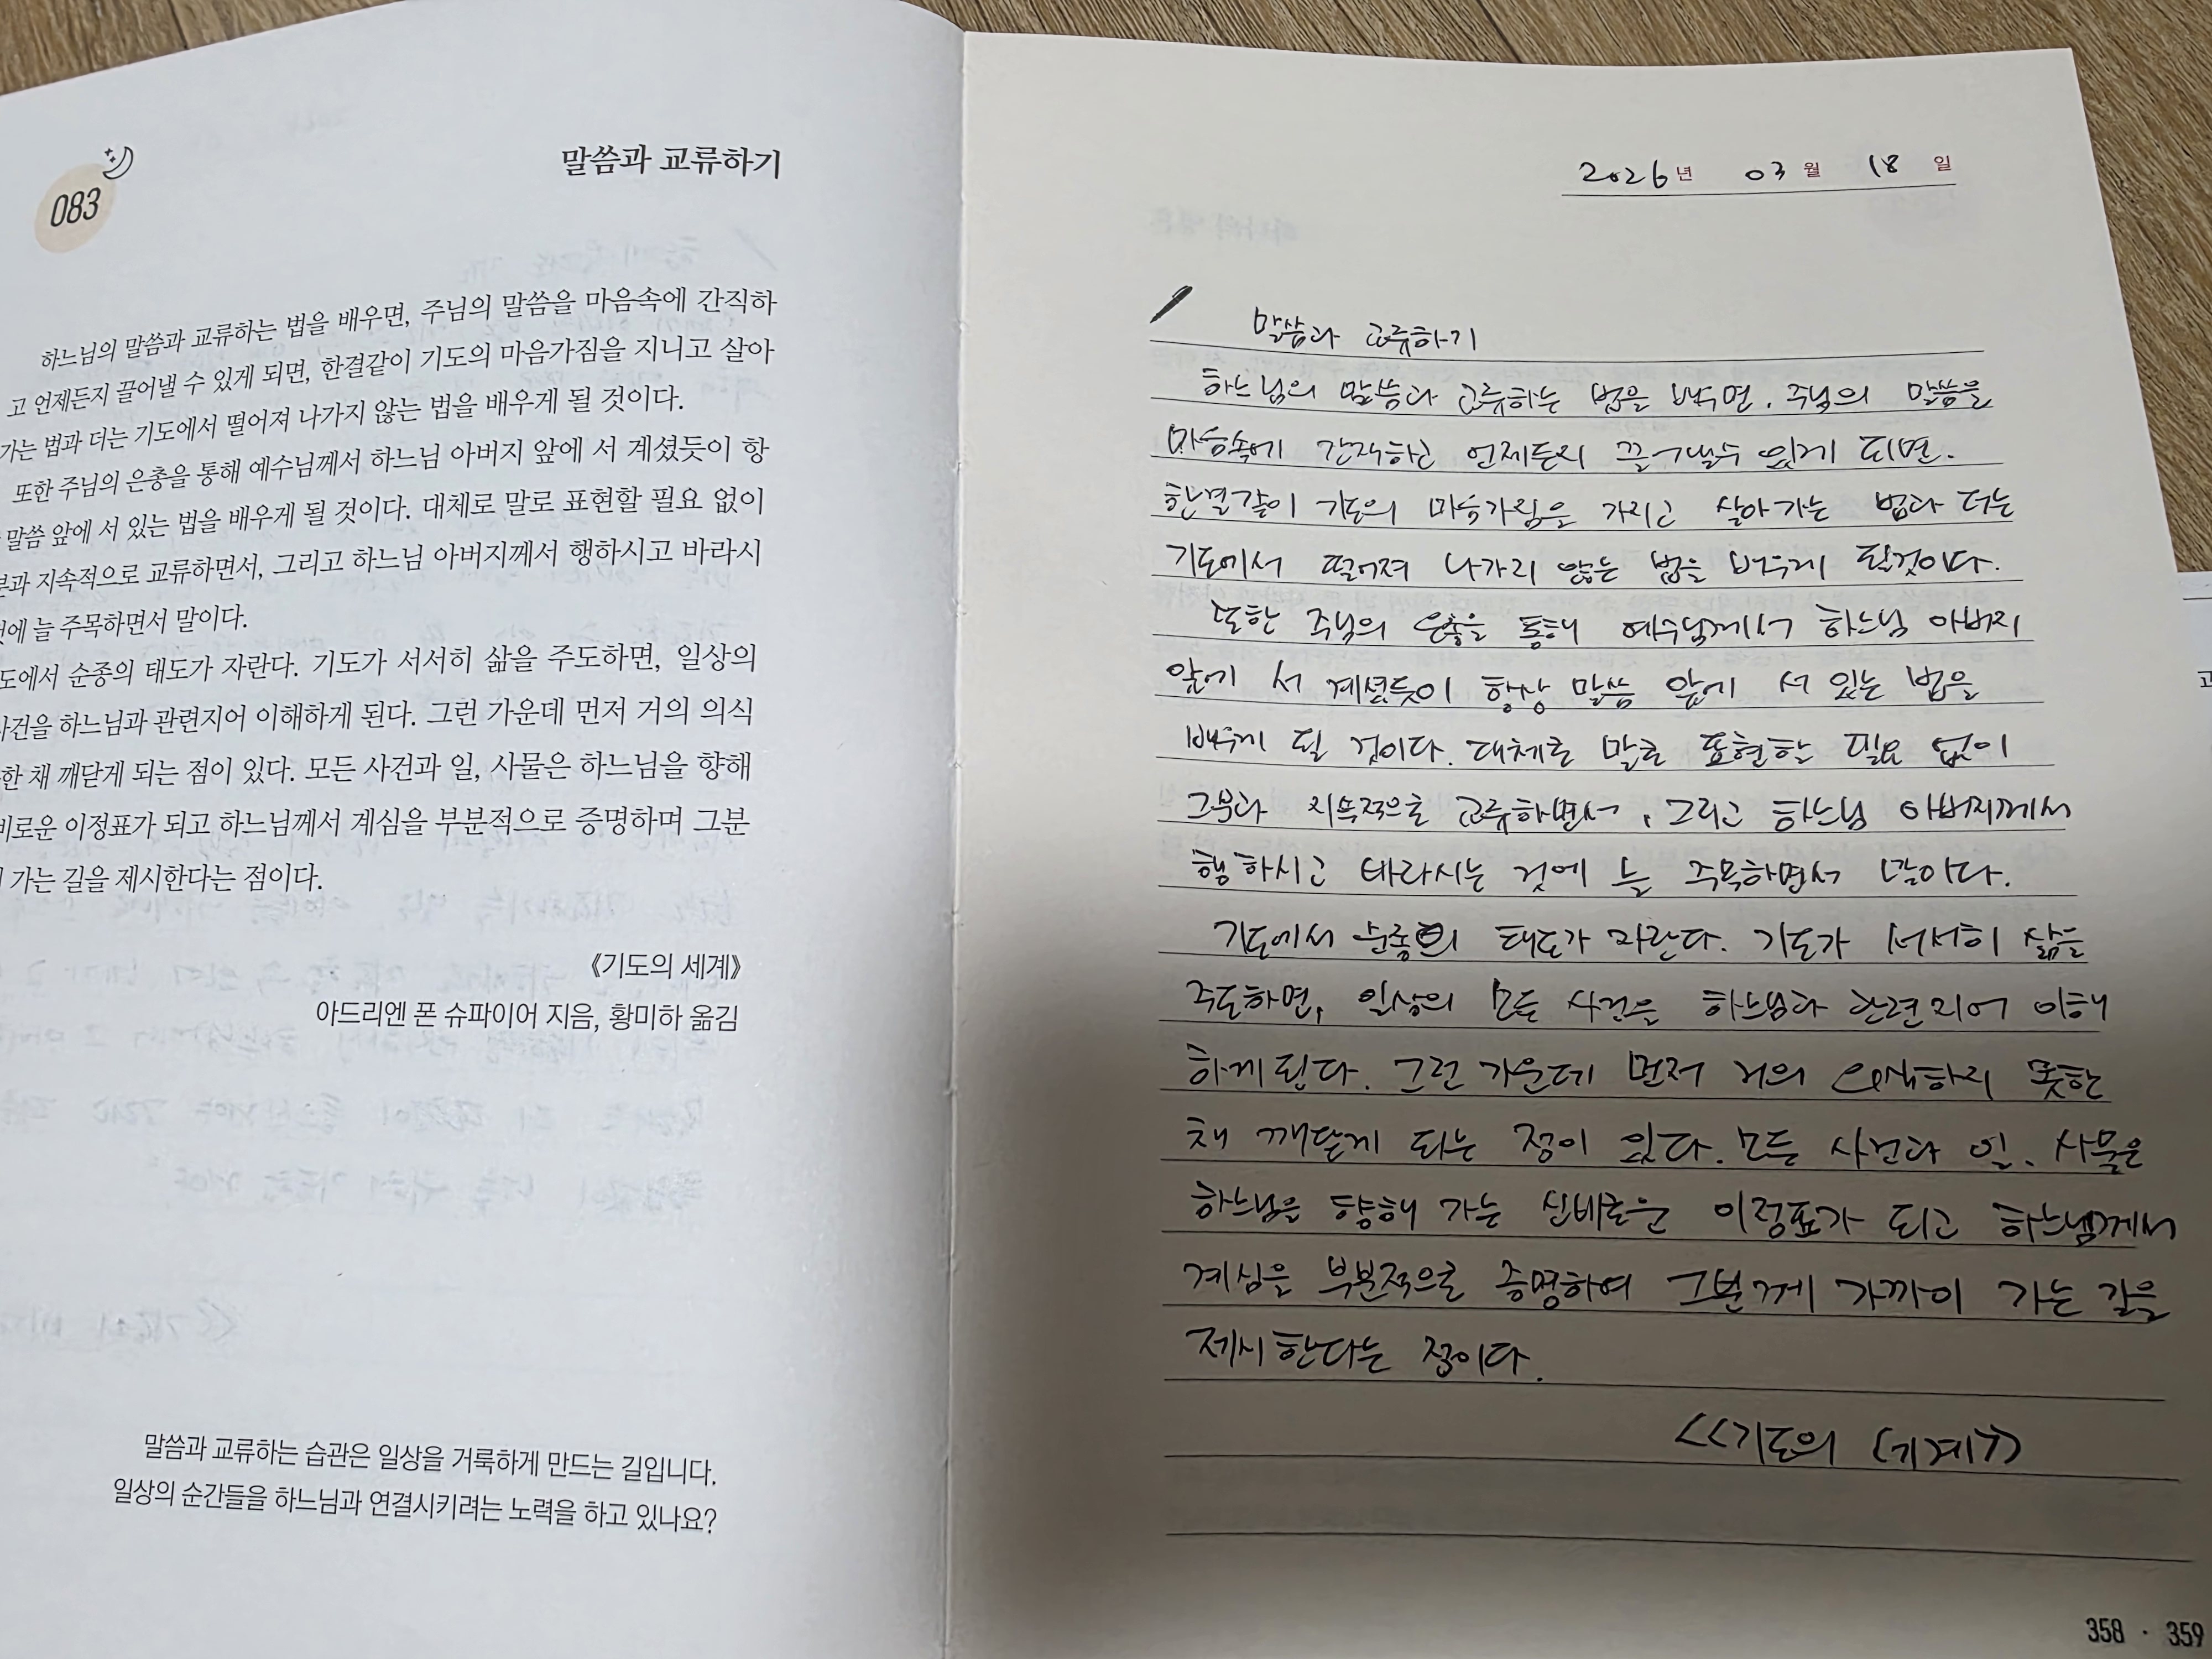 083
말씀과 교류하기
하느님의 말씀과 교류하는 법을 배우면, 주님의 말씀을 마음속에 간직하
고 언제든지 끌어낼 수 있게 되면, 한결같이 기도의 마음가짐을 지니고 살아
가는 법과 더는 기도에서 떨어져 나가지 않는 법을 배우게 될 것이다.
또한 주님의 은총을 통해 예수님께서 하느님 아버지 앞에 서 계셨듯이 항
말씀 앞에 서 있는 법을 배우게 될 것이다. 대체로 말로 표현할 필요 없이
분과 지속적으로 교류하면서, 그리고 하느님 아버지께서 행하시고 바라시
것에 늘 주목하면서 말이다.
도에서 순종의 태도가 자란다. 기도가 서서히 삶을 주도하면, 일상의
사건을 하느님과 관련지어 이해하게 된다. 그런 가운데 먼저 거의 의식
한 채 깨닫게 되는 점이 있다. 모든 사건과 일, 사물은 하느님을 향해
비로운 이정표가 되고 하느님께서 계심을 부분적으로 증명하며 그분
가는 길을 제시한다는 점이다.
《기도의 세계》
아드리엔 폰 슈파이어 지음, 황미하 옮김
말씀과 교류하는 습관은 일상을 거룩하게 만드는 길입니다.
일상의 순간들을 하느님과 연결시키려는 노력을 하고 있나요?
2026년 03월 18일
말씀과 교류하기
하느님의 말씀과 교류하는 법을 배우면. 주님의 말씀을
마음속에 간직하고 언제든지 끌어낼수 있게 되면.
한결같이 기도의 마음가짐을 가지고 살아가는 법과 더는
기도에서 떨어져 나가지 않는 법을 배우게 될것이다.
또한 주님의 은총을 통해 예수님께서 하느님 아버지
앞에 서 계셨듯이 항상 말씀 앞에 서 있는 법을
배우게 될 것이다. 대체로 말로 표현할 필요 없이
그분과 지속적으로 교류하면서, 그리고 하느님 아버지께서
행하시고 바라시는 것에 늘 주목하면서 말이다.
기도에서 순종의 태도가 자란다. 기도가 서서히 삶을
주도하면, 일상의 모든 사건을 하느님과 관련지어 이해
하게 된다. 그런 가운데 먼저 거의 의식하지 못한
채 깨닫게 되는 점이 있다. 모든 사건과 일. 사물은
하느님을 향해 가는 신비로운 이정표가 되고 하느님께서
계심을 부분적으로 증명하며 그분께 가까이 가는 길을
제시한다는 점이다.
<<기도의 세계>>
358 · 359